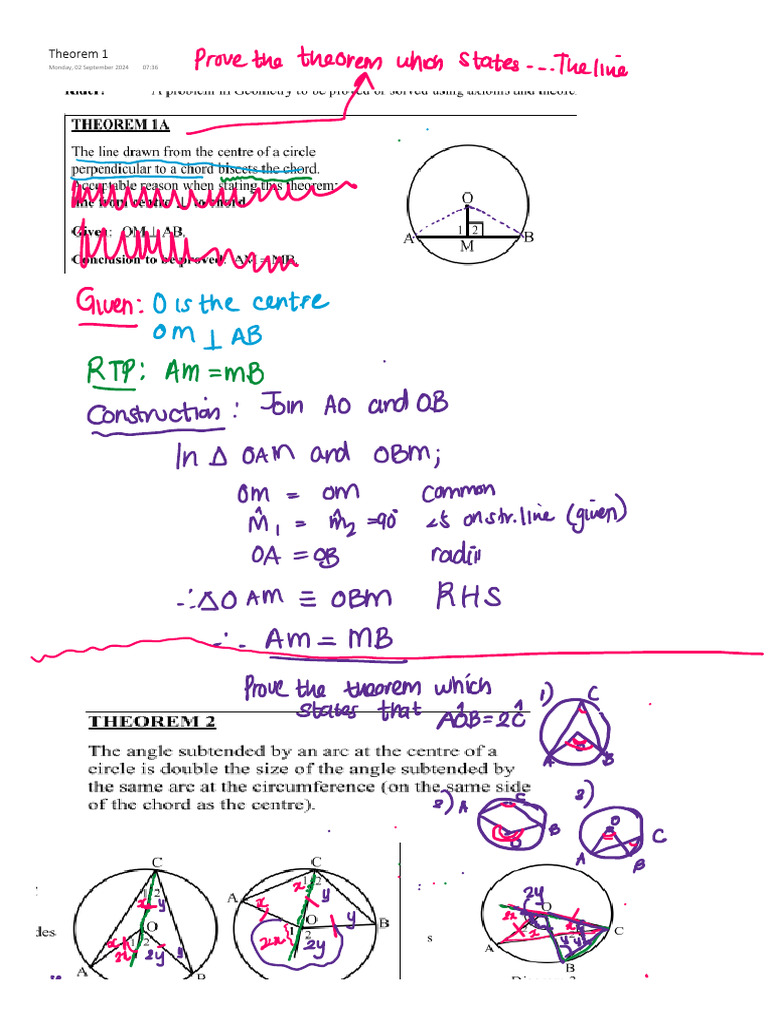 Theorem 1
Monday, 02 September 2024 07:36
Prove the theorem which states ---The line
A problem in Geometry to be proved or solved using axioms and theore
THEOREM 1A
The line drawn from the centre of a circle
perpendicular to a chord bisects the chord.
Acceptable reason when stating this theorem:
line from centre ⊥ to chord
Given: OM ⊥ AB.
Conclusion to be proved: AM = MB.
O
1 2
A
M
B
Given: O is the centre
OM ⊥ AB
RTP: AM = MB
Construction: Join AO and OB
In Δ OAM and OBM;
OM = OM common
M̂1 = M̂2 = 90° ∠s on str. line (given)
OA = OB radii
∴ΔOAM ≡ OBM RHS
∴ AM = MB
Prove the theorem which
states that AÔB = 2Ĉ
THEOREM 2
The angle subtended by an arc at the centre of a
circle is double the size of the angle subtended by
the same arc at the circumference (on the same side
of the chord as the centre).
1)
C
A
B
2)
A
C
B
O
3)
O
A
B
C
des
C
1 2
x y
O
x 1 2 y
2x 2y
A
B
C
1 2
x y
A
x
O
1
2
y
B
2x
2y
s
2y
O
2x
x
x
C
A
y
y
B